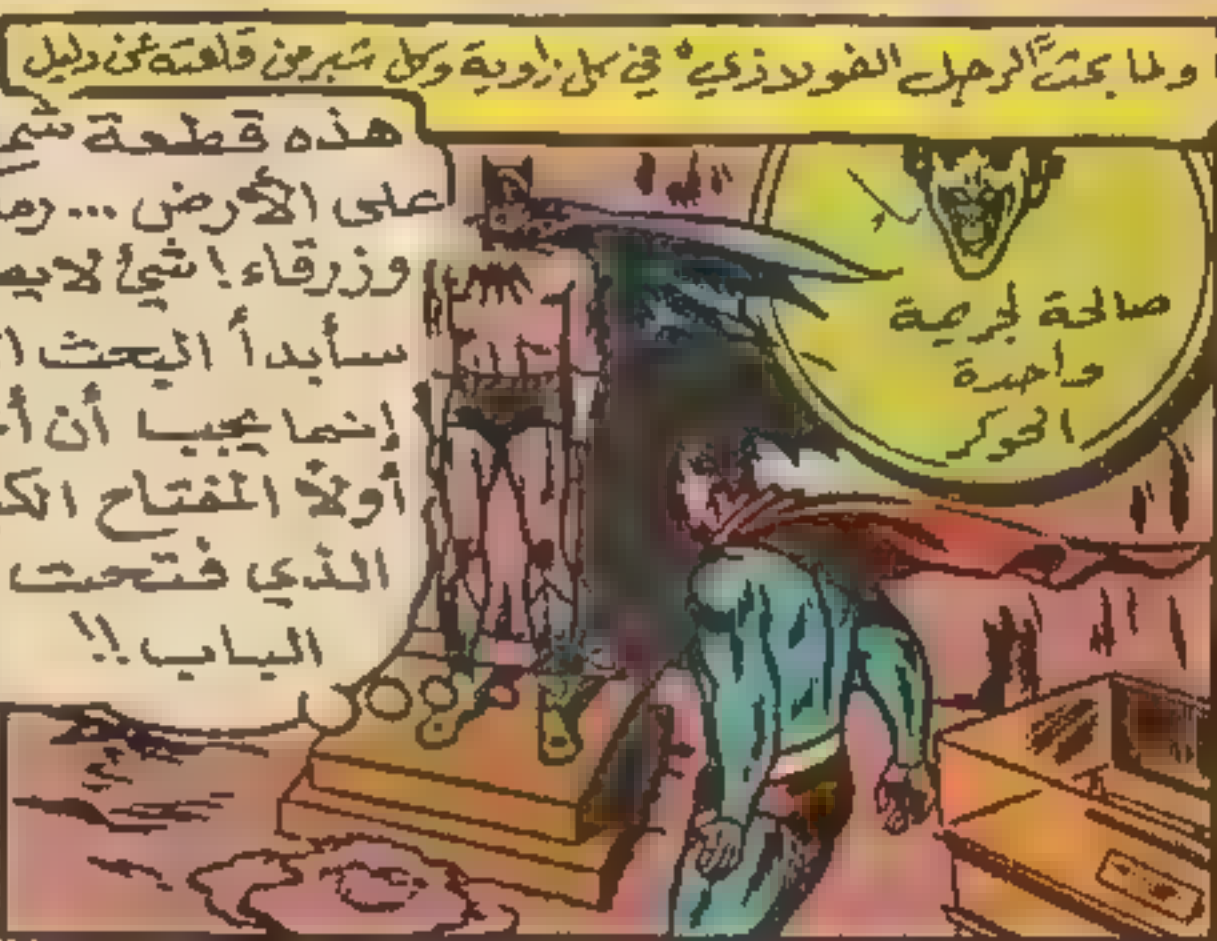 ولما بحث "الرجل الفولاذي" في كل زاوية وكل شبر من قلعته عن دليل
هذه قطعة
على الأرض ...
وزرقاء! شيئ لا
سأبدأ البحث
إنما يجب أن
أولاً المفتاح
الذي فتحت
الباب!!
صالحة لجرمة
واحدة
الجوكر